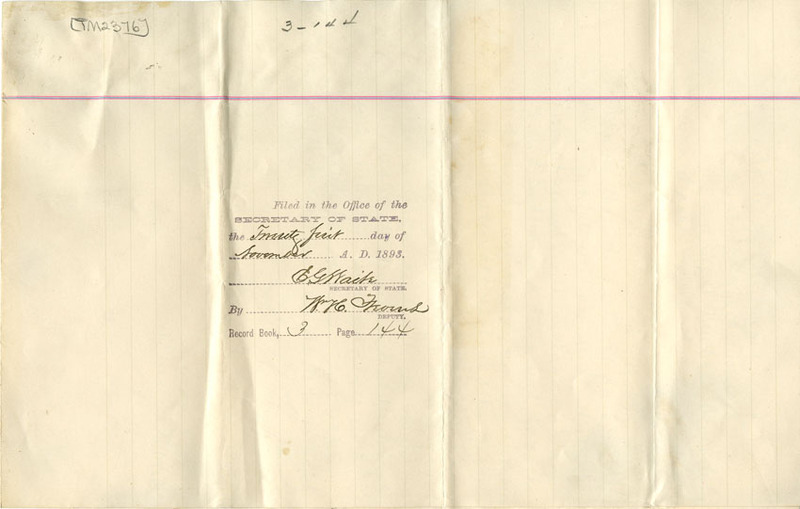 [TM2376]
3-144
Filed in the Office of the
SECRETARY OF STATE,
the Twenty first day of
November A. D. 1893.
E G Waite
SECRETARY OF STATE.
By W. H.
DEPUTY.
Record Book, 3 Page 144